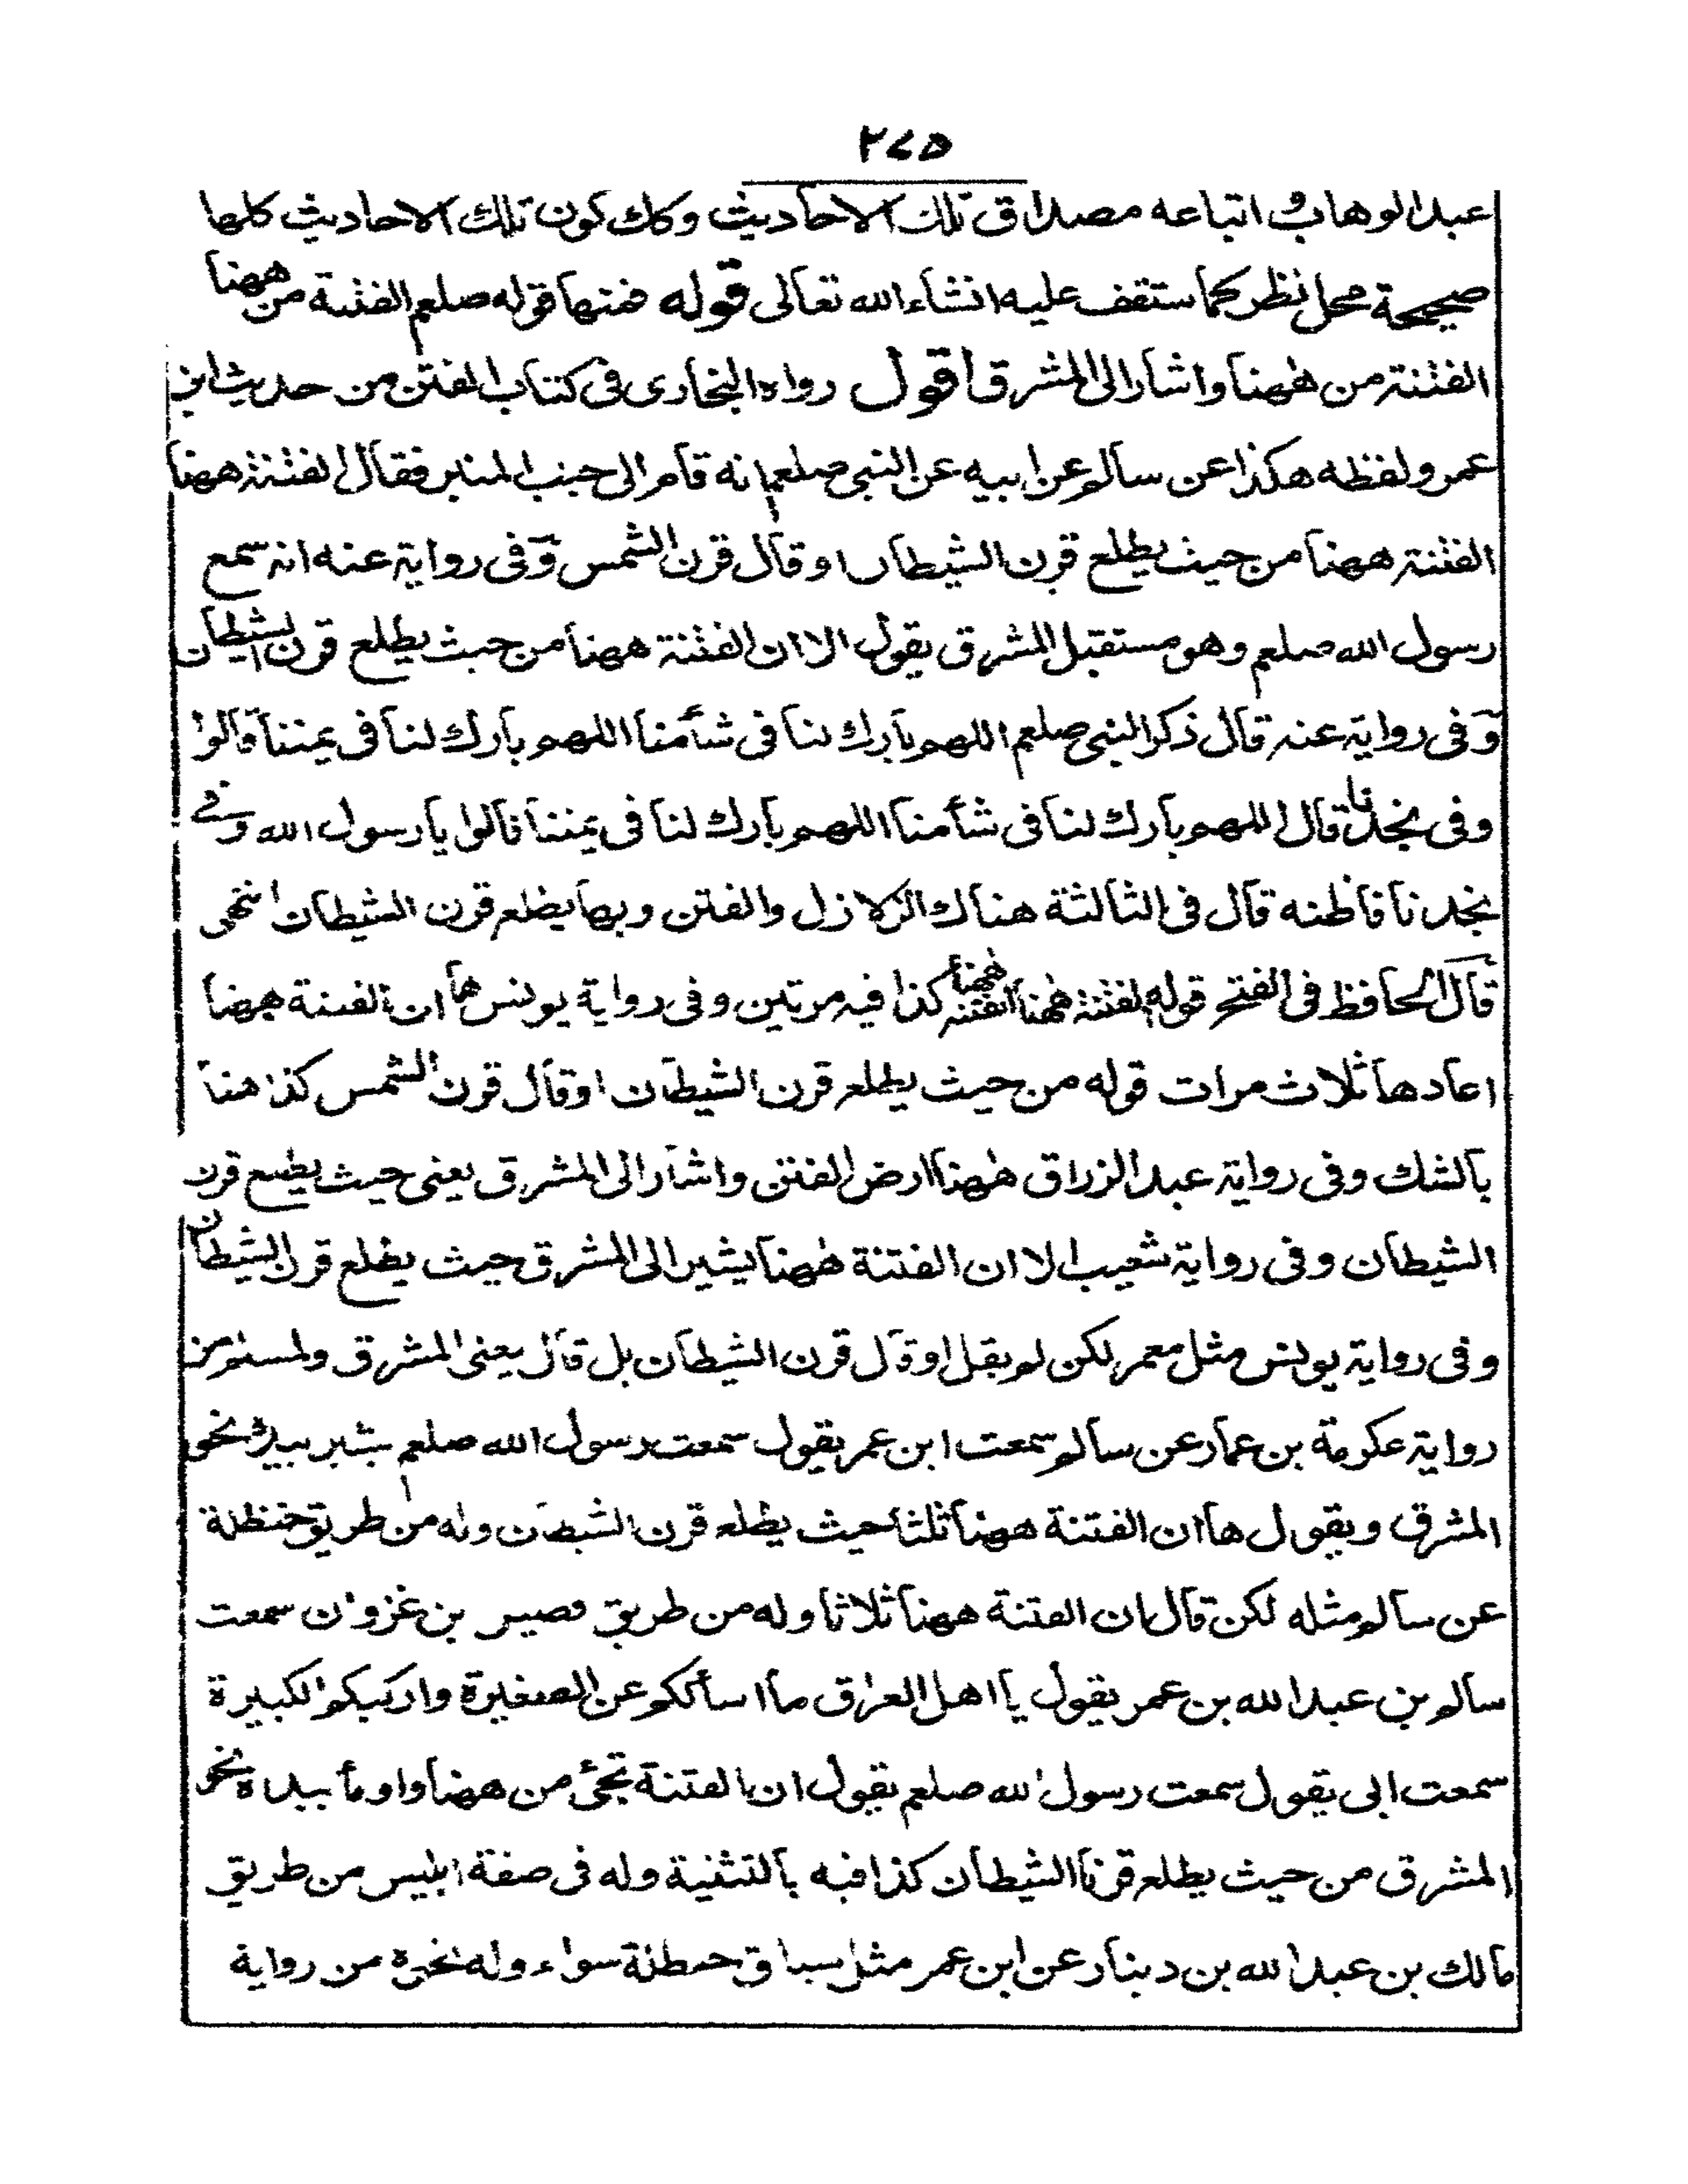 ٢٧٥
عبد الوهاب و اتباعه مصداق تلك الاحاديث وكك كون تلك الاحاديث كلها
صحيحة محل نظر كما ستقف عليه انشاء الله تعالى قوله فمنها قوله صلعم الفتنة من ههنا
الفتنة من ههنا واشار الى المشرق اقول رواه البخارى فى كتاب الفتن من حديث ابن
عمر ولفظه هكذا عن سالم عن ابيه عن النبى صلعم انه قام الى جنب المنبر فقال الفتنة ههنا
الفتنة ههنا من حيث يطلع قرن الشيطان او قال قرن الشمس وفى رواية عنه انه سمع
رسول الله صلعم وهو مستقبل المشرق يقول الا ان الفتنة ههنا من حيث يطلع قرن الشيطان
وفى رواية عنه قال ذكر النبى صلعم اللهم بارك لنا فى شأمنا اللهم بارك لنا فى يمننا قالوا
وفى نجدنا قال اللهم بارك لنا فى شأمنا اللهم بارك لنا فى يمننا قالوا يا رسول الله وفى
نجدنا فاظنه قال فى الثالثة هناك الزلازل والفتن وبها يطلع قرن الشيطان انتهى
قال الحافظ فى الفتح قوله الفتنة ههنا الفتنة ههنا كذا فيه مرتين وفى رواية يونس ها ان الفتنة ههنا
اعادها ثلاث مرات قوله من حيث يطلع قرن الشيطان او قال قرن الشمس كذا هنا
بالشك وفى رواية عبد الرزاق ههنا ارض الفتن واشار الى المشرق يعنى حيث يطلع قرن
الشيطان وفى رواية شعيب الا ان الفتنة ههنا يشير الى المشرق حيث يطلع قرن الشيطان
وفى رواية يونس مثل معمر لكن لم يقل او قال قرن الشيطان بل قال يعنى المشرق ولمسلم من
رواية عكرمة بن عمار عن سالم سمعت ابن عمر يقول سمعت رسول الله صلعم يشير بيده نحو
المشرق ويقول ها ان الفتنة ههنا ثلثا حيث يطلع قرن الشيطان وله من طريق حنظلة
عن سالم مثله لكن قال ان الفتنة ههنا ثلاثا وله من طريق فضيل بن غزوان سمعت
سالم بن عبد الله بن عمر يقول يا اهل العراق ما اسألكم عن الصغيرة واركبكم الكبيرة
سمعت ابى يقول سمعت رسول الله صلعم يقول ان الفتنة تجئ من ههنا واومأ بيده نحو
المشرق من حيث يطلع قرنا الشيطان كذا فيه بالتثنية وله فى صفة ابليس من طريق
مالك بن عبد الله بن دينار عن ابن عمر مثل سياق حنظلة سواء وله نحوه من رواية